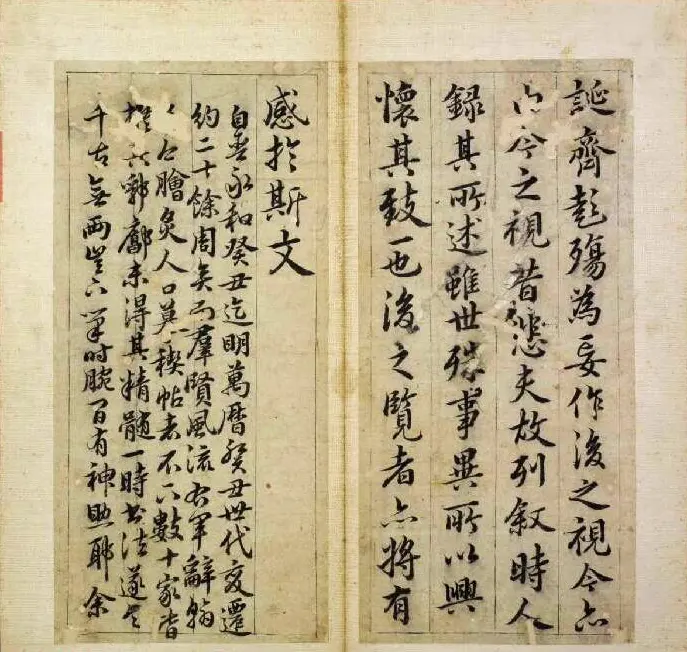 誕齊彭殤為妄作後之視今亦
由今之視昔悲夫故列叙時人
錄其所述雖世殊事異所以興
懷其致一也後之覽者亦將有
感於斯文
自晉永和癸丑迄明萬曆癸丑世代变遷
約二十餘周矣而羣賢風流右軍辭翰
人膾炙人口莫稧帖者不下數十家皆
郛廓未得其精髓一時書法遂令
千古無兩豈下筆時腕有神助耶余